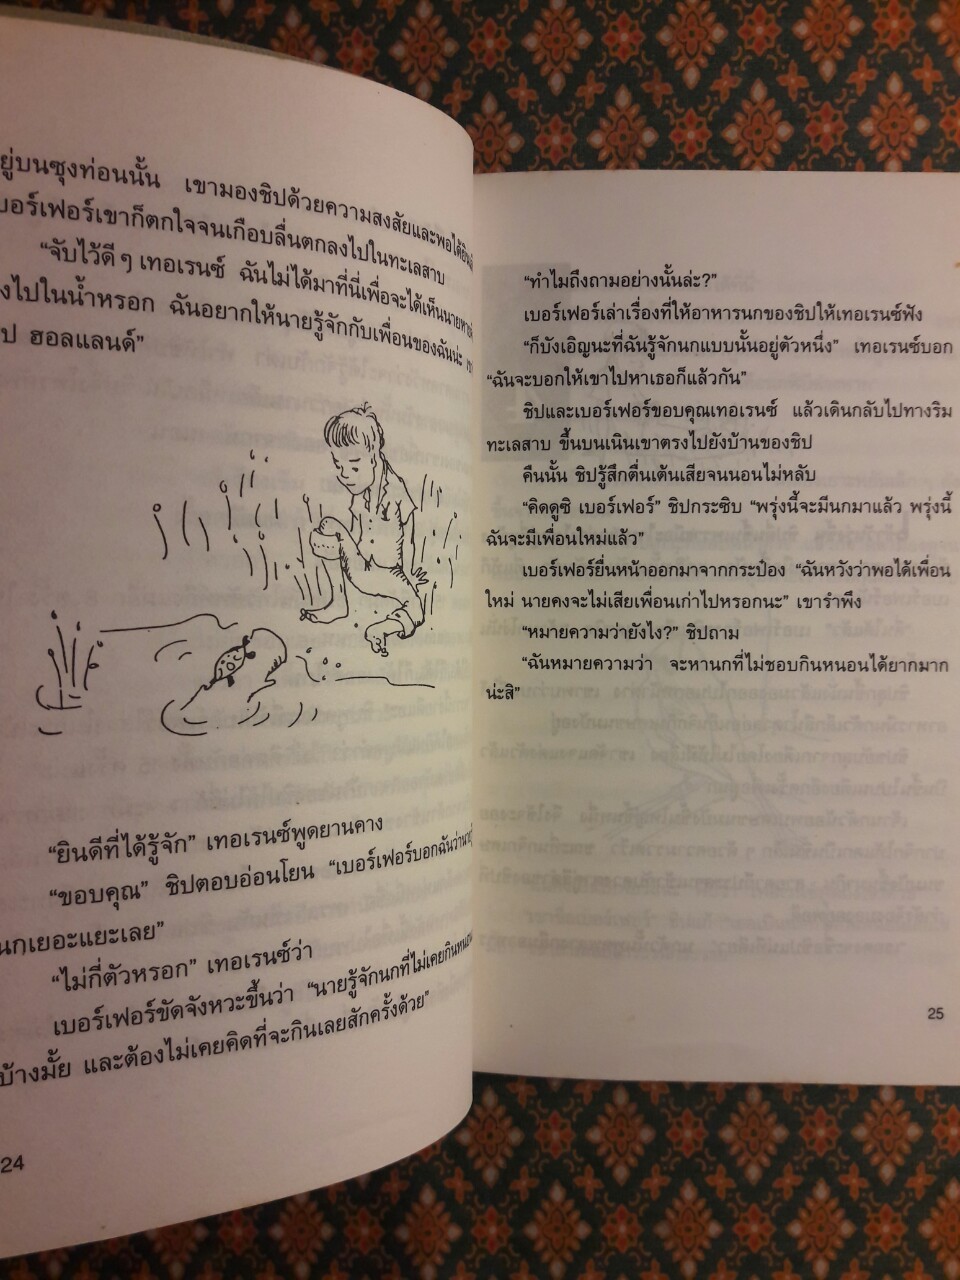 ยู่บนซุงท่อนนั้น เขามองชิปด้วยความสงสัยและพอได้ยิน
บอร์เฟอร์เขาก็ตกใจจนเกือบลื่นตกลงไปในทะเลสาบ
“จับไว้ดีๆ เทอเรนซ์ ฉันไม่ได้มาที่นี่เพื่อจะได้เห็นนาย
งไปในน้ำหรอก ฉันอยากให้นายรู้จักกับเพื่อนของฉันน่ะ
ป ฮอลแลนด์”
“ยินดีที่ได้รู้จัก” เทอเรนซ์พูดยานคาง
“ขอบคุณ” ชิปตอบอ่อนโยน “เบอร์เฟอร์บอกฉันว่า
นกเยอะแยะเลย”
“ไม่กี่ตัวหรอก” เทอเรนซ์ว่า
เบอร์เฟอร์ขัดจังหวะขึ้นว่า “นายรู้จักนกที่ไม่เคยกินหนอน
บ้างมั้ย และต้องไม่เคยคิดที่จะกินเลยสักครั้งด้วย”
24
“ทำไมถึงถามอย่างนั้นล่ะ?”
เบอร์เฟอร์เล่าเรื่องที่ให้อาหารนกของชิปให้เทอเรนซ์ฟัง
“ก็บังเอิญนะที่ฉันรู้จักนกแบบนั้นอยู่ตัวหนึ่ง” เทอเรนซ์บอก
“ฉันจะบอกให้เขาไปหาเธอก็แล้วกัน”
ชิปและเบอร์เฟอร์ขอบคุณเทอเรนซ์ แล้วเดินกลับไปทางริม
ทะเลสาบ ขึ้นบนเนินเขาตรงไปยังบ้านของชิป
คืนนั้น ชิปรู้สึกตื่นเต้นเสียจนนอนไม่หลับ
“คิดดูซิ เบอร์เฟอร์” ชิปกระซิบ “พรุ่งนี้จะมีนกมาแล้ว พรุ่งนี้
ฉันจะมีเพื่อนใหม่แล้ว”
เบอร์เฟอร์ยื่นหน้าออกมาจากกระป๋อง “ฉันหวังว่าพอได้เพื่อน
ใหม่ นายคงจะไม่เสียเพื่อนเก่าไปหรอกนะ” เขารำพึง
“หมายความว่ายังไง?” ชิปถาม
“ฉันหมายความว่า จะหานกที่ไม่ชอบกินหนอนได้ยากมาก
น่ะสิ”
25